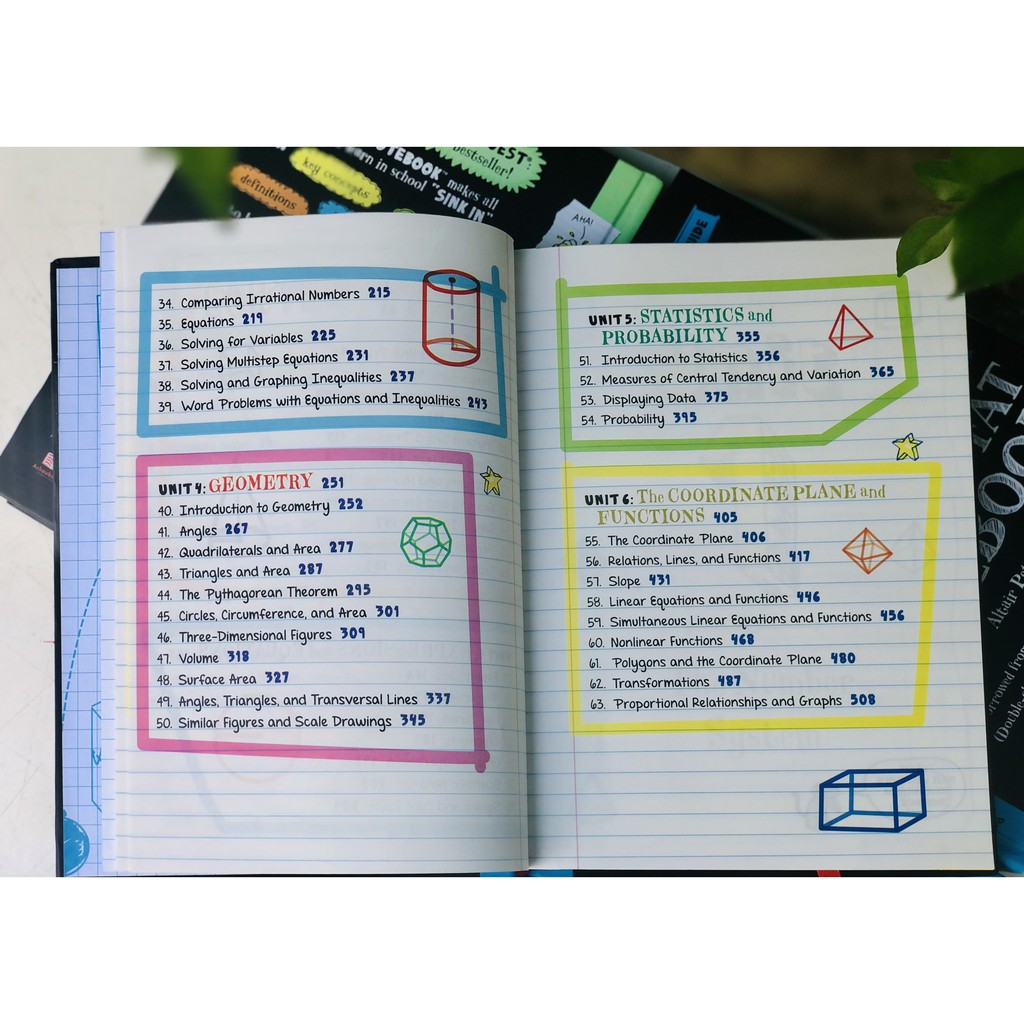 BEST!
bestseller!
key concepts
NOTEBOOK™ makes all
learn in school "SINK IN"
definitions
AHA!
34. Comparing Irrational Numbers 215
35. Equations 219
36. Solving for Variables 225
37. Solving Multistep Equations 231
38. Solving and Graphing Inequalities 237
39. Word Problems with Equations and Inequalities 243
UNIT 4: GEOMETRY 251
40. Introduction to Geometry 252
41. Angles 267
42. Quadrilaterals and Area 277
43. Triangles and Area 287
44. The Pythagorean Theorem 295
45. Circles, Circumference, and Area 301
46. Three-Dimensional Figures 309
47. Volume 318
48. Surface Area 327
49. Angles, Triangles, and Transversal Lines 337
50. Similar Figures and Scale Drawings 345
UNIT 5: STATISTICS and
PROBABILITY 355
51. Introduction to Statistics 356
52. Measures of Central Tendency and Variation 365
53. Displaying Data 375
54. Probability 395
UNIT 6: The COORDINATE PLANE and
FUNCTIONS 405
55. The Coordinate Plane 406
56. Relations, Lines, and Functions 417
57. Slope 431
58. Linear Equations and Functions 446
59. Simultaneous Linear Equations and Functions 456
60. Nonlinear Functions 468
61. Polygons and the Coordinate Plane 480
62. Transformations 487
63. Proportional Relationships and Graphs 508